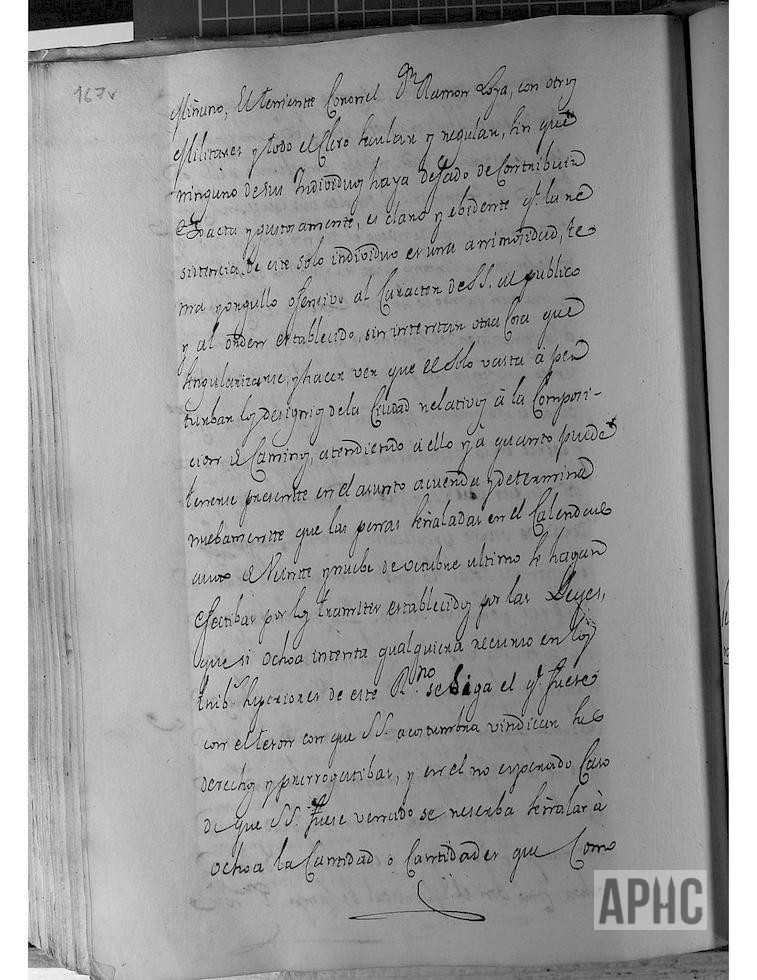 167v
Miñano, El teniente Coronel Dn Ramon Loya, con otros
Militares y todo el Clero secular y regular, sin que
ninguno de sus Individuos haya dejado de Contribuir
exacta y gustosamente, es claro y ebidente qe. la re
sistencia de este solo individuo es una animosidad, te
ma y orgullo ofensivo al Caracter de S.S. al publico
y al orden establecido, sin intentar otra Cosa que
singularizarse, y hacer ver que el Solo vasta à per
turbar los designios de la Ciudad relativos à la Composi-
cion de Caminos, atendiendo à ello y à quanto puede
tenerse presente en el asunto acuerda y determina
nuebamente que las penas señaladas en el Calendado
auto de Veinte y nuebe de octubre ultimo se hagan
efectibas por los tramites establecidos por las Leyes,
que si ochoa intenta qualquiera recurso en los
trib.s superiores de este R.no se Siga el qe. fuere
con el teson con que S.S. acostumbra vindicar sus
derechos y prerrogatibas, y en el no esperado Caso
de que S.S. fuese vencido se reserba señalar à
ochoa la Cantidad o Cantidades que Como
APHC